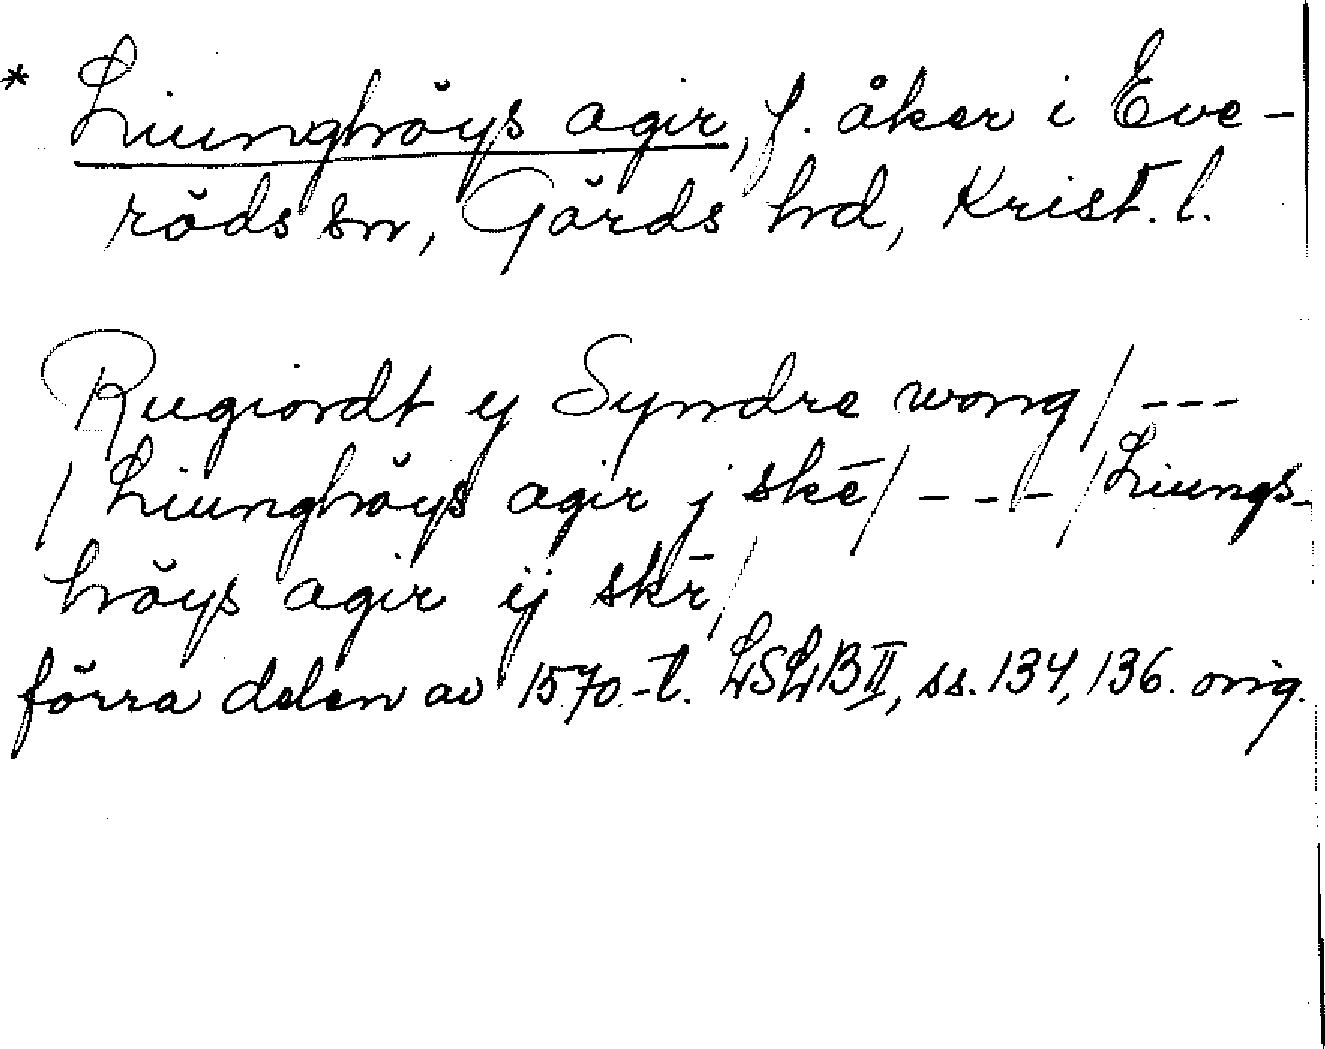 * Liunghöys agir, f. åker i Eve-
röds sn, Gärds hd, Krist. l.
Rugiordt ij Syndre wong/ ---
/ Liunghöys agir j skē/ --- /Liungs-
höys agir ij skr̄/
förra delen av 1570-t. LSLB II, ss. 134, 136. orig.